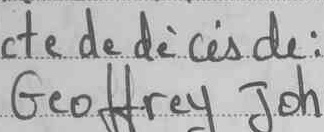 cte de dècès de:
Geoffrey Joh